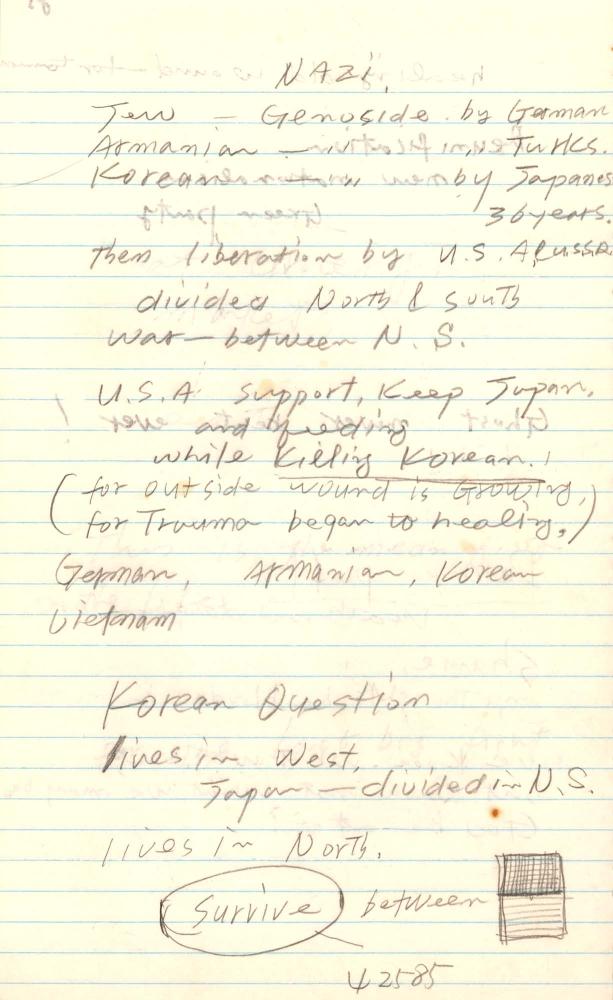 NAZi,
Jew - Genoside by German
Armanian - " " Turks.
Korean " by Japanes
36 years.
then liberation by U.S.A, Russia
divided North & South
war - between N. S.
U.S.A support, Keep Japan,
and feeding
while Killig Korean.!
(for outside wound is Growing,)
(for Trauma began to healing,)
German, Armanian, Korean
Vietnam
Korean Question
lives in West,
Japan - divided in N.S.
lives in North,
Survive between
42585